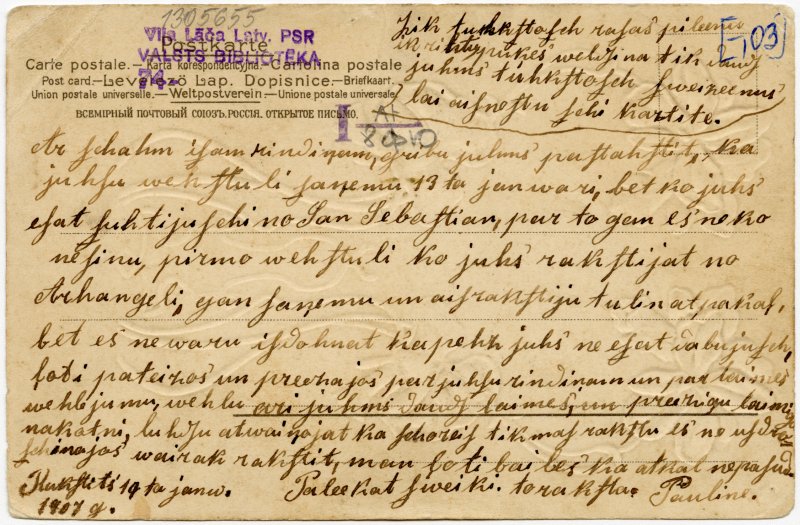 1305655
Viļa Lāča Latv. PSR
VALSTS BIBLIOTĒKA
74-
Postkarte
Carte postale.—Karta korespondencyjna.—Cartolina postale
Post card.—Levelező Lap. Dopisnice.—Briefkaart.
Union postale universelle.—Weltpostverein.—Unione postale universale
ВСЕМІРНЫЙ ПОЧТОВЫЙ СОЮЗЪ. РОССІЯ. ОТКРЫТОЕ ПИСЬМО.
2-103
Tik tuhkstosch rasas pileenu
puķes weldsina tik daudz
juhms tuhkstosch sweizeenus
lai aisnestu schi kartite.
Ar schahm isam rindiņam, gribu juhms pastahstit, ka
juhsu wehstuli saņemu 13 ta janwari, bet ko juhs
esat suhtijuschi no San Sebastian, par to gan es neko
nesinu, pirmo wehstuli ko juhs rakstijat no
Arhangeli, gan saņemu un aisrakstiju tulin atpakaļ,
bet es newaru isdohmat kapehz juhs ne esat dabujuschi,
ļoti pateizos un preezajos par juhsu rindiņam un par laimes
wehlejumu, wehlu ari juhms daudz laimes, un preezigu laimigu
nakatni, luhdsu atwainojat ka schoreis tik mas rakstu es ne usdro
schinajos wairak rakstit, man ļoti bail bes ka atkal nepasud.
Rakstits 19 ta janw.
1907 g.
Paleekat sweiki. to raksta. Pauline.